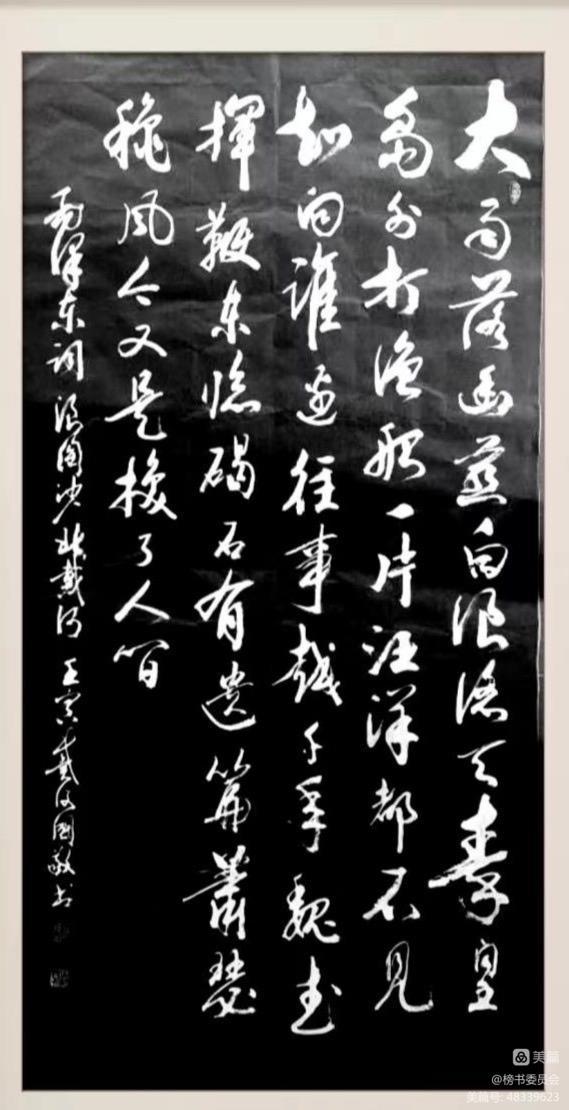 大雨落幽燕白浪滔天秦皇
岛外打渔船一片汪洋都不见
知向誰边往事越千年魏武
揮鞭东临碣石有遗篇蕭瑟
穐风今又是换了人间
毛泽东词浪淘沙北戴河 壬寅 國敬书
美篇
@榜书委员会
美篇号: 48339623